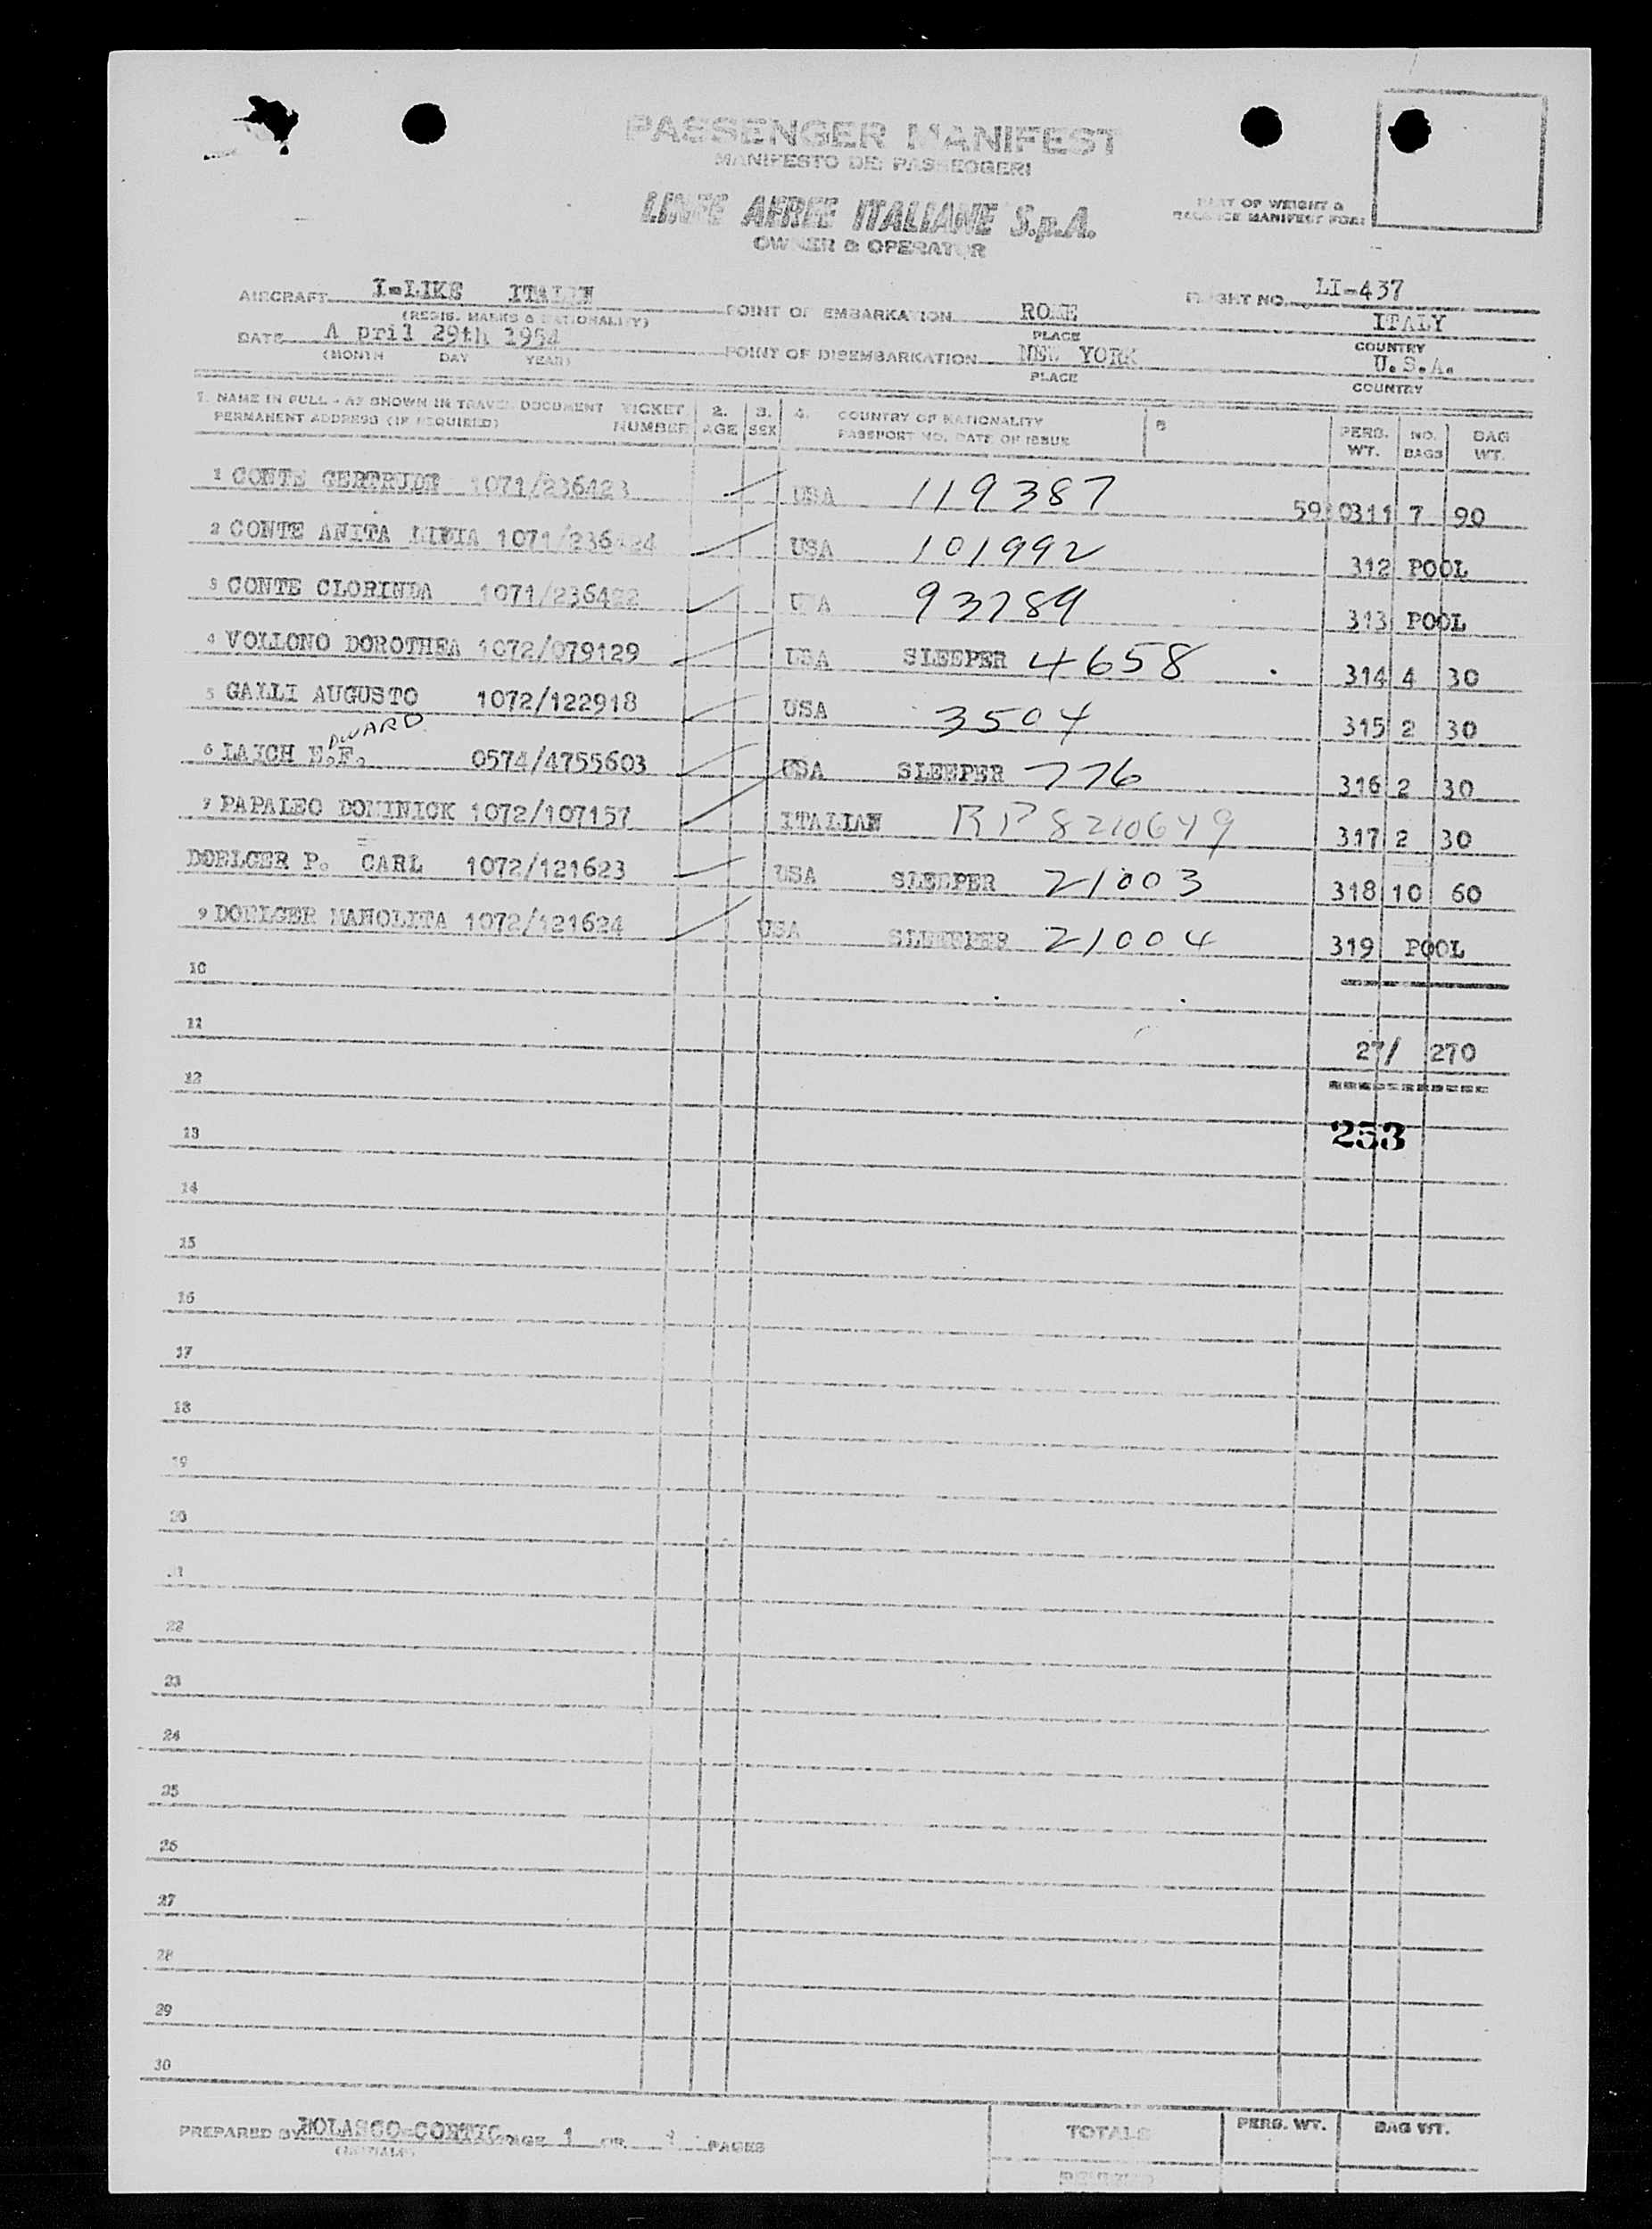 PASSENGER MANIFEST
MANIFESTO DEI PASSEGGERI
LINEE AEREE ITALIANE S.p.A.
OWNER & OPERATOR
PART OF WEIGHT &
BALANCE MANIFEST FOR:
AIRCRAFT I-LIKE ITALIAN
(REGIS. MARKS & NATIONALITY)
POINT OF EMBARKATION ROME ITALY
PLACE COUNTRY
FLIGHT NO. LI-437
DATE A pril 29th 1954
(MONTH DAY YEAR)
POINT OF DISEMBARKATION NEW YORK U.S.A.
PLACE COUNTRY
1. NAME IN FULL - AS SHOWN IN TRAVEL DOCUMENT TICKET 2. 3. 4. COUNTRY OF NATIONALITY 5 PERS. NO. BAG
PERMANENT ADDRESS (IF REQUIRED) NUMBER AGE SEX PASSPORT NO. DATE OF ISSUE WT. BAGS WT.
1 CONTE GERTRUDE 1071/236423 USA 119387 59 0311 7 90
2 CONTE ANITA 1071/236424 USA 101992 312 POOL
3 CONTE CLORINDA 1071/236422 USA 93789 313 POOL
4 VOLLONO DOROTHEA 1072/079129 USA SLEEPER 4658 314 4 30
5 GALLI AUGUSTO 1072/122918 USA 3504 315 2 30
DWARD
6 LAICH E.F. 0574/4755603 USA SLEEPER 776 316 2 30
7 PAPALEO DOMINICK 1072/107157 ITALIAN RP8210649 317 2 30
DOELGER P. CARL 1072/121623 USA SLEEPER 21003 318 10 60
9 DOELGER MANOLITA 1072/121624 USA SLEEPER 21004 319 POOL
10
11
27/ 270
12
13
253
14
15
16
17
18
19
20
21
22
23
24
25
26
27
28
29
30
PREPARED BY PAGE 1 OF PAGES
(INITIALS)
TOTALS PERS. WT. BAG WT.